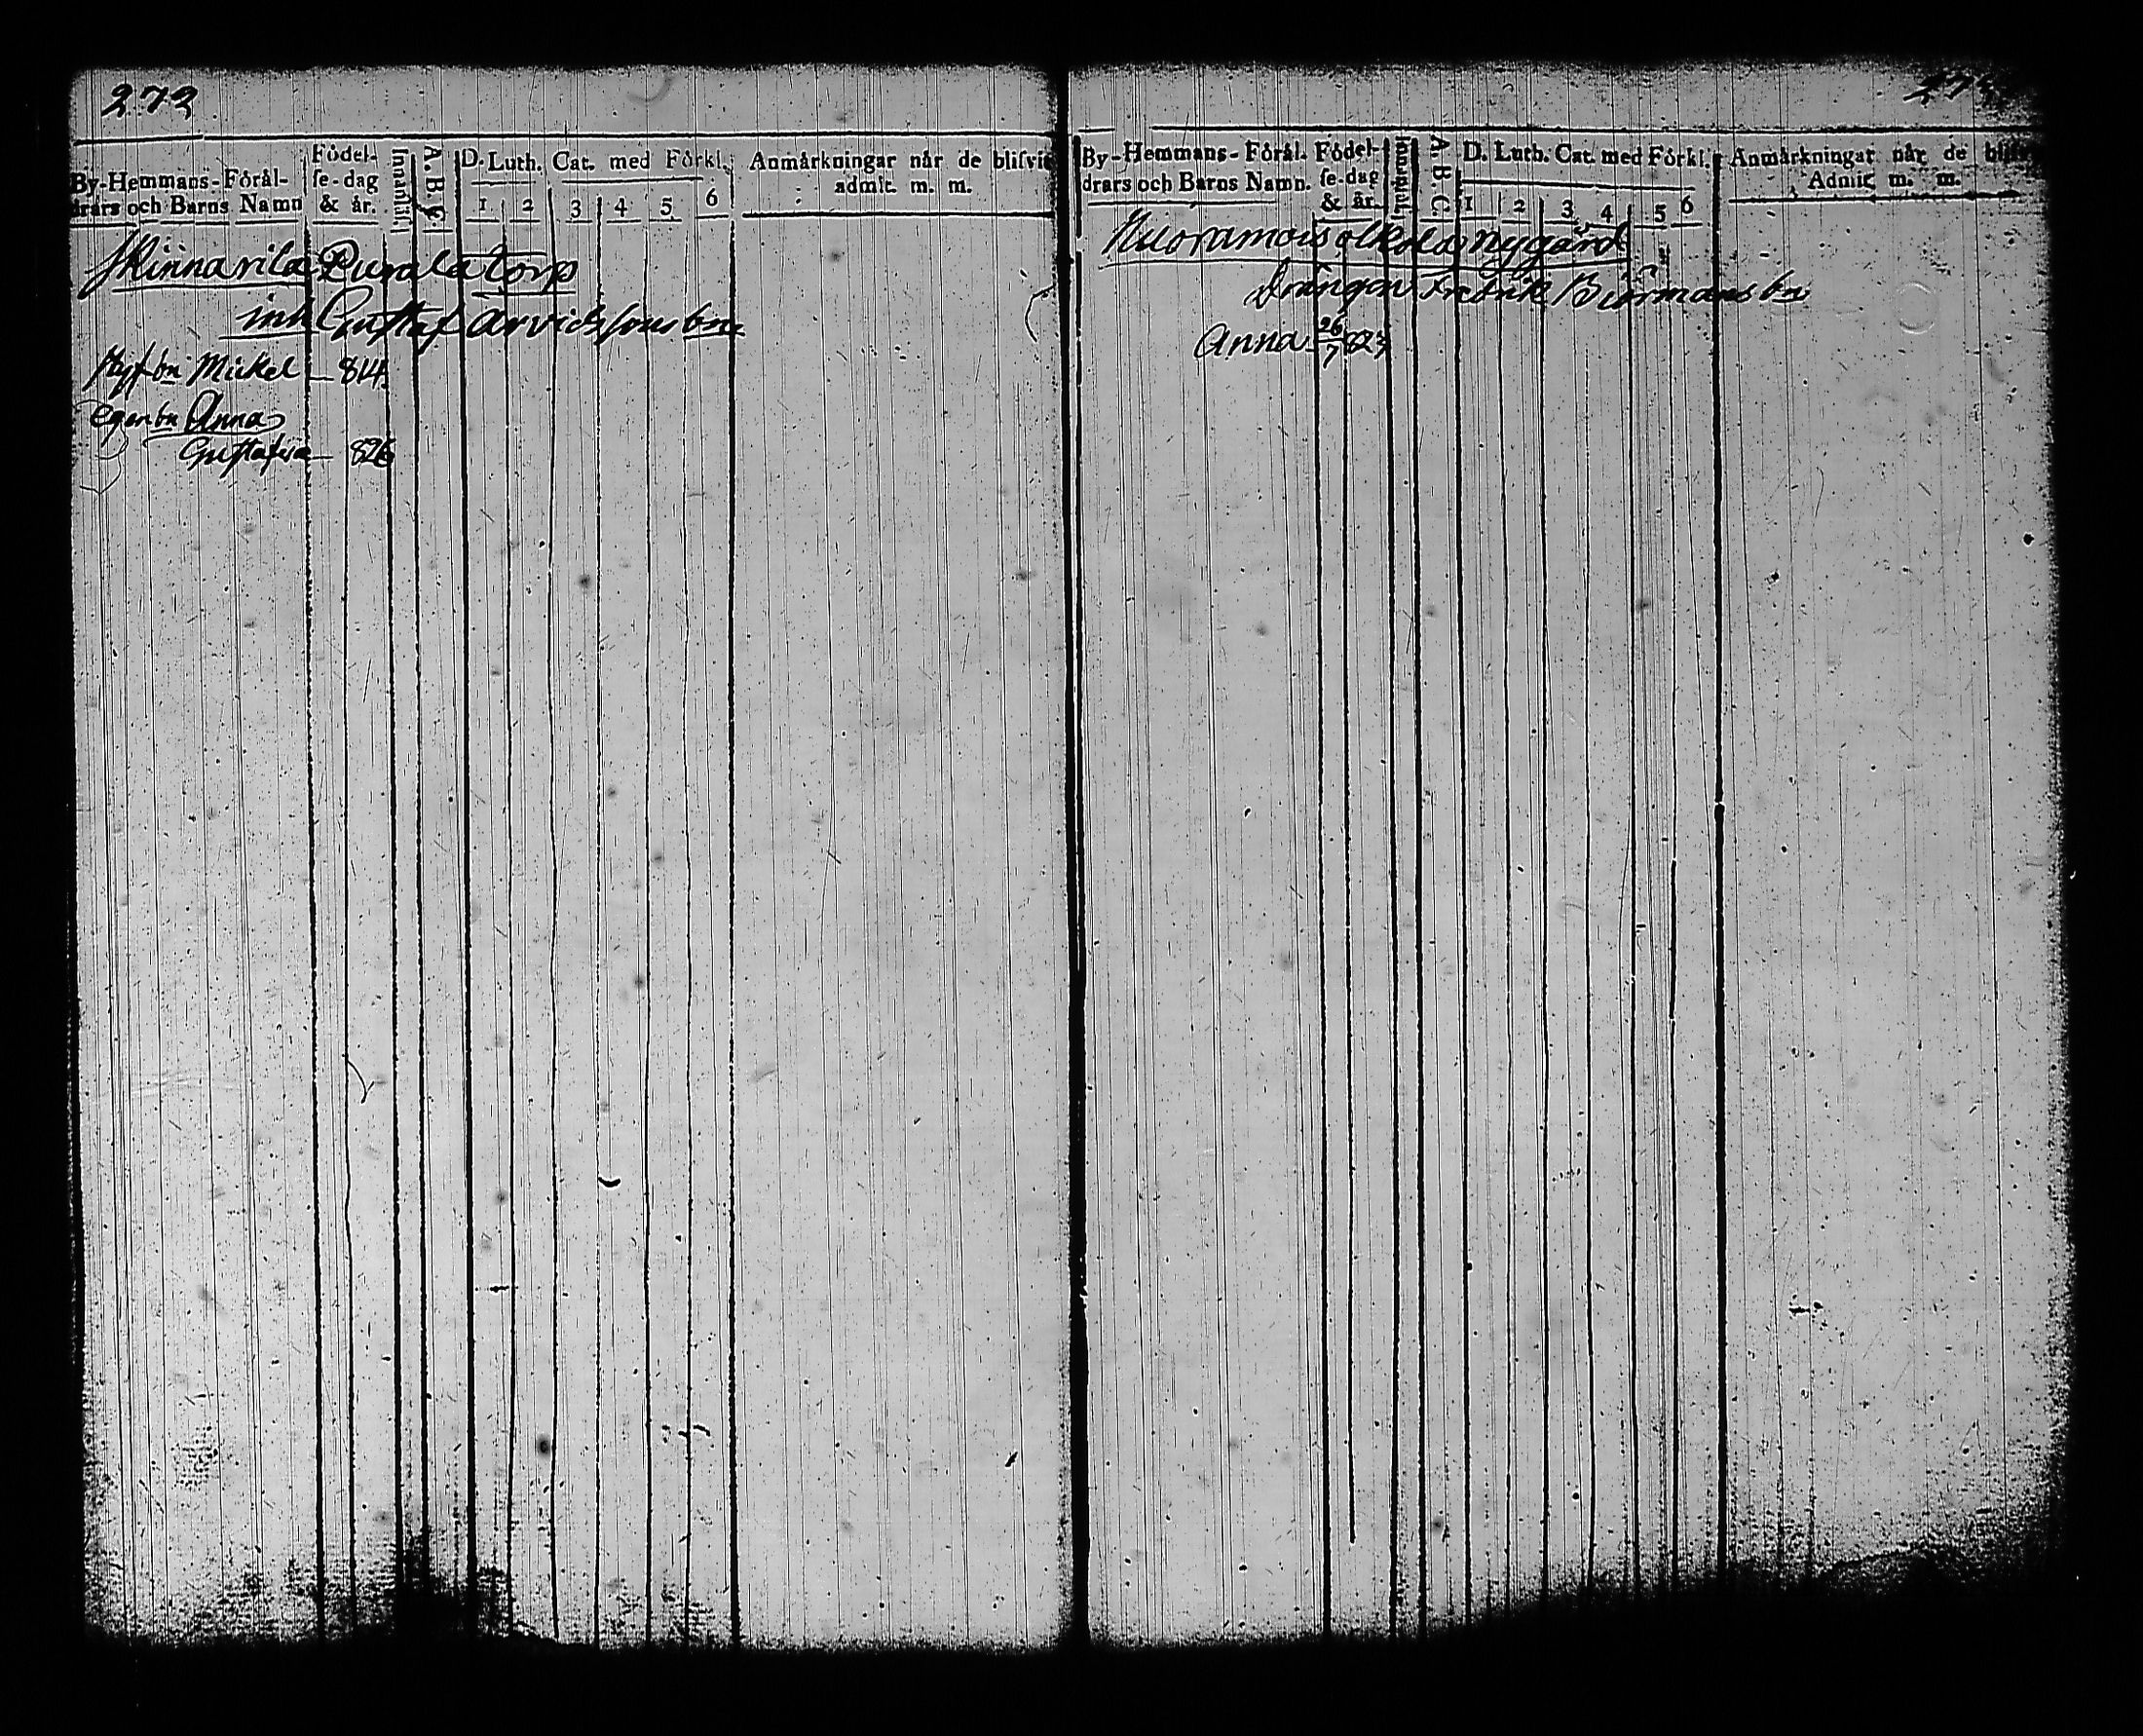 272
By-Hemmans-Föräl-
drars och Barns Namn
Födel-
se-dag
& år.
Innanläsn
A. B. C.
D. Luth. Cat. med Förkl.
1 2 3 4 5 6
Anmärkningar när de blifvit
admit. m. m.
Skinnarila Purala torp
inh Gustaf Arvidssons bn
Styfbn Mickel — 814
egen bn Anna
Gustafva — 826
By-Hemmans-Föräl-
drars och Barns Namn.
Födel-
se-dag
& år.
A. B. C.
D. Luth. Cat. med Förkl.
1 2 3 4 5 6
Anmärkningar når de
Admit m. m.
nygård
Drängen Fredrik Biörmans bn
Anna 26/7 823